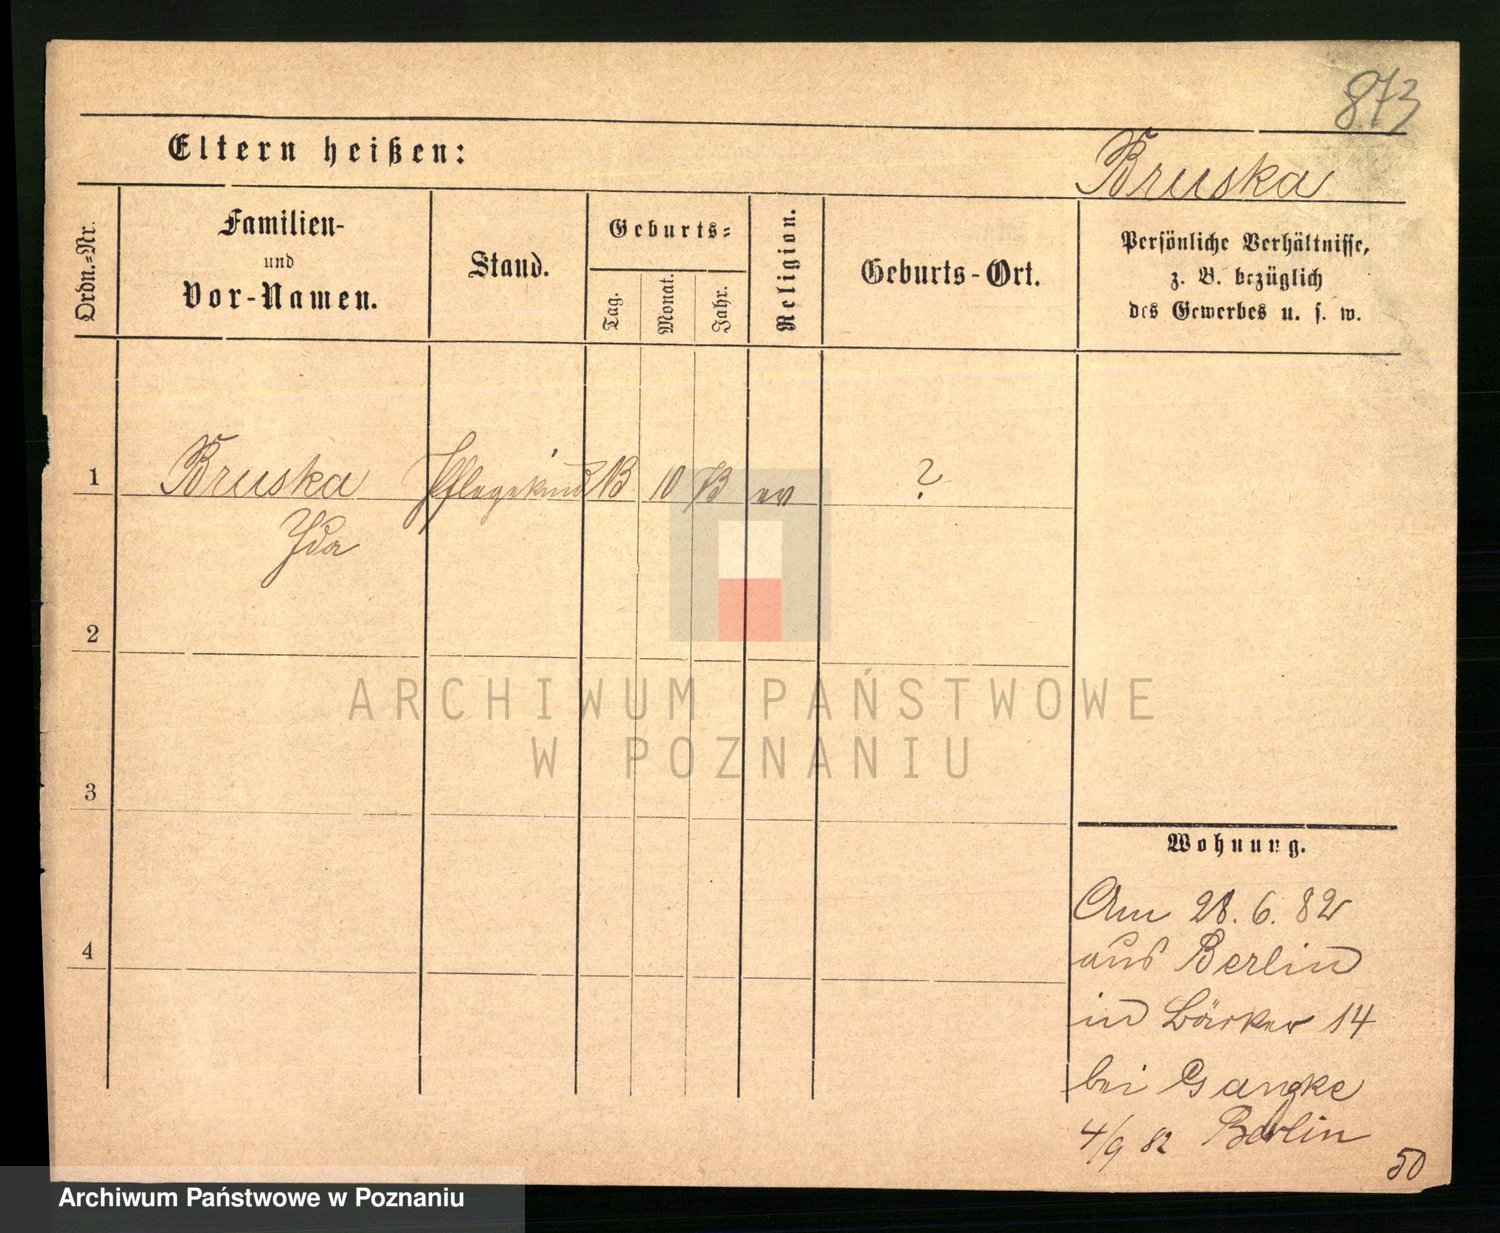 873
Eltern heißen:
Bruska
Ordn.-Nr.
Familien-
und
Vor-Namen.
Stand.
Geburts-
Tag.
Monat.
Jahr.
Religion.
Geburts-Ort.
Persönliche Verhältnisse,
z. B. bezüglich
des Gewerbes u. s. w.
1 Bruska Pflegekind 10 ev ?
Ida
2
ARCHIWUM PAŃSTWOWE
W POZNANIU
3
Wohnung.
Am 28. 6. 82
aus Berlin
4
in Bäcker 14
bei Ganzke
4/9 82 Berlin
50
Archiwum Państwowe w Poznaniu